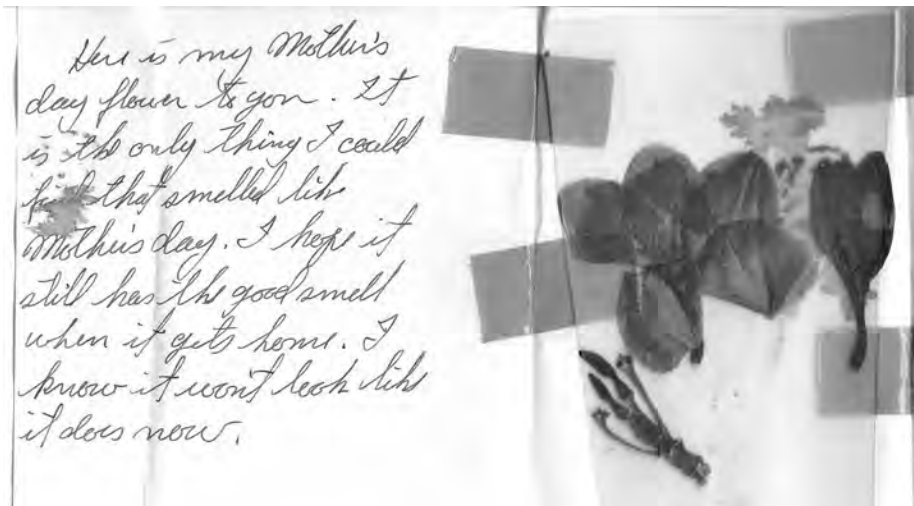 Here is my Mother's
day flower to you. It
is the only thing I could
find that smelled like
Mother's day. I hope it
still has the good smell
when it gets home. I
know it won't look like
it does now.